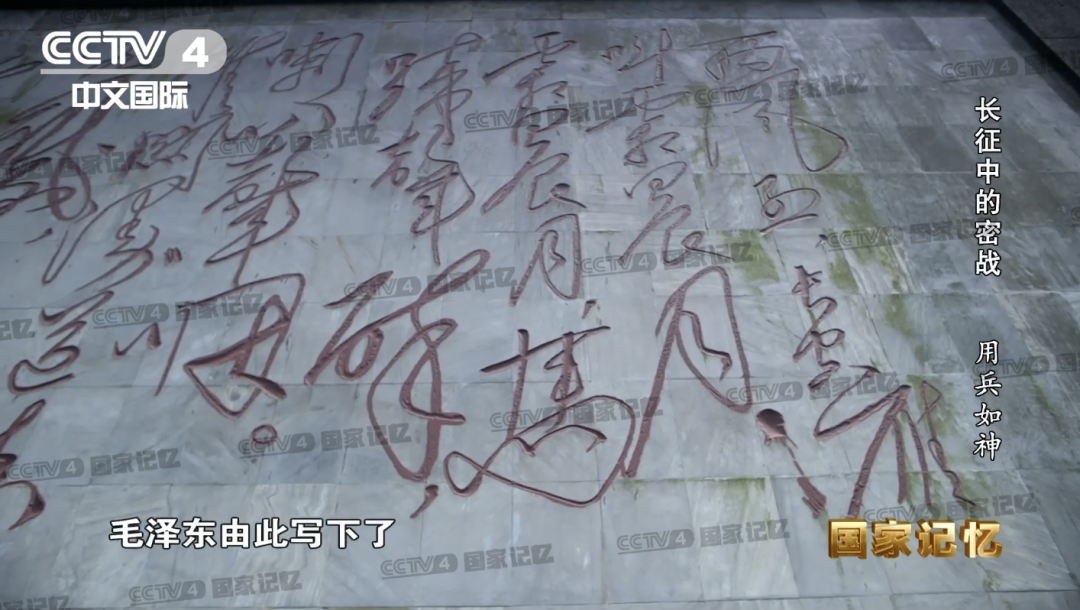 CCTV 4
中文国际
长征中的密战
用兵如神
西风烈，长空雁
叫霜晨月，
霜晨月，马
蹄声碎，
喇叭声咽。
雄关漫道
毛泽东由此写下了
国家记忆
CCTV4 国家记忆